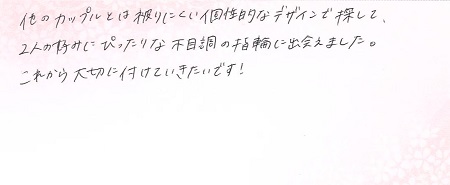 他のカップルとは被りにくい個性的なデザインで探して、
2人の好みにぴったりな木目調の指輪に出会えました。
これから大切に付けていきたいです!